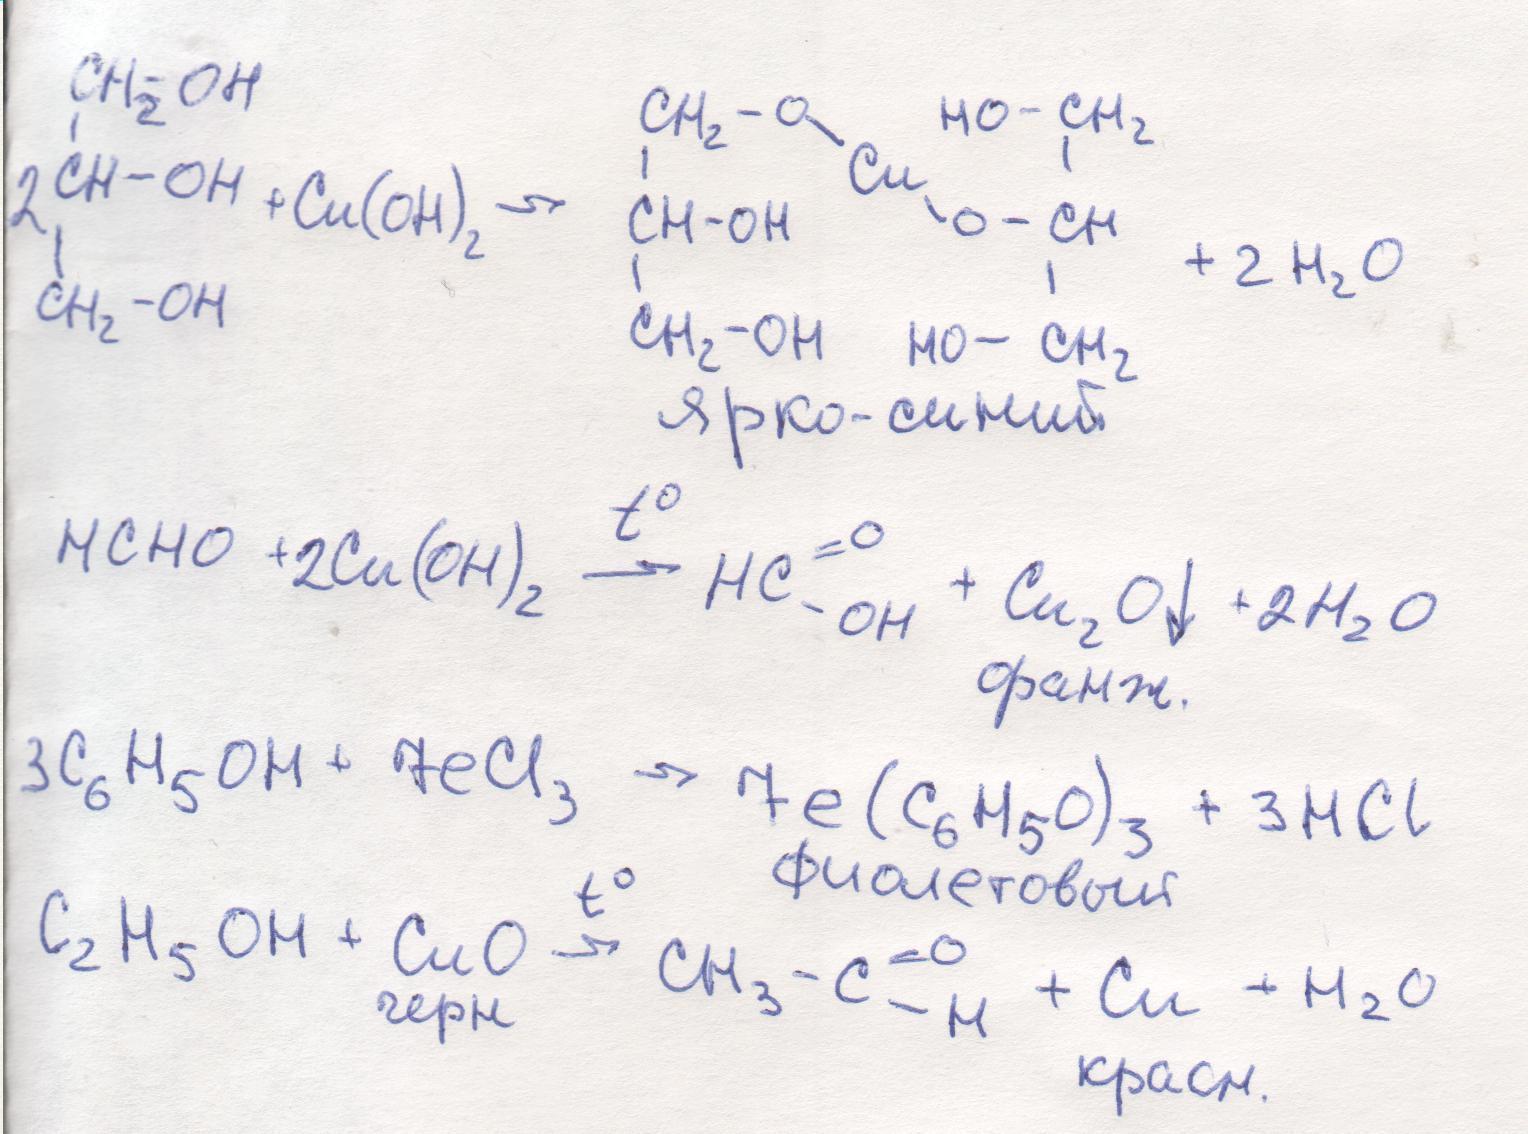 CH₂-OH
CH-OH
CH₂-OH
2
+ Cu(OH)₂ →
CH₂-O
CH-OH
CH₂-OH
Cu
HO-CH₂
O-CH
HO-CH₂
+ 2H₂O
ярко-синий
HCHO + 2Cu(OH)₂ t° → HC =O -OH + Cu₂O↓ + 2H₂O
оранж.
3C₆H₅OH + FeCl₃ → Fe(C₆H₅O)₃ + 3HCl
фиолетовый
C₂H₅OH + CuO t° → CH₃-C =O -H + Cu + H₂O
черн
красн.